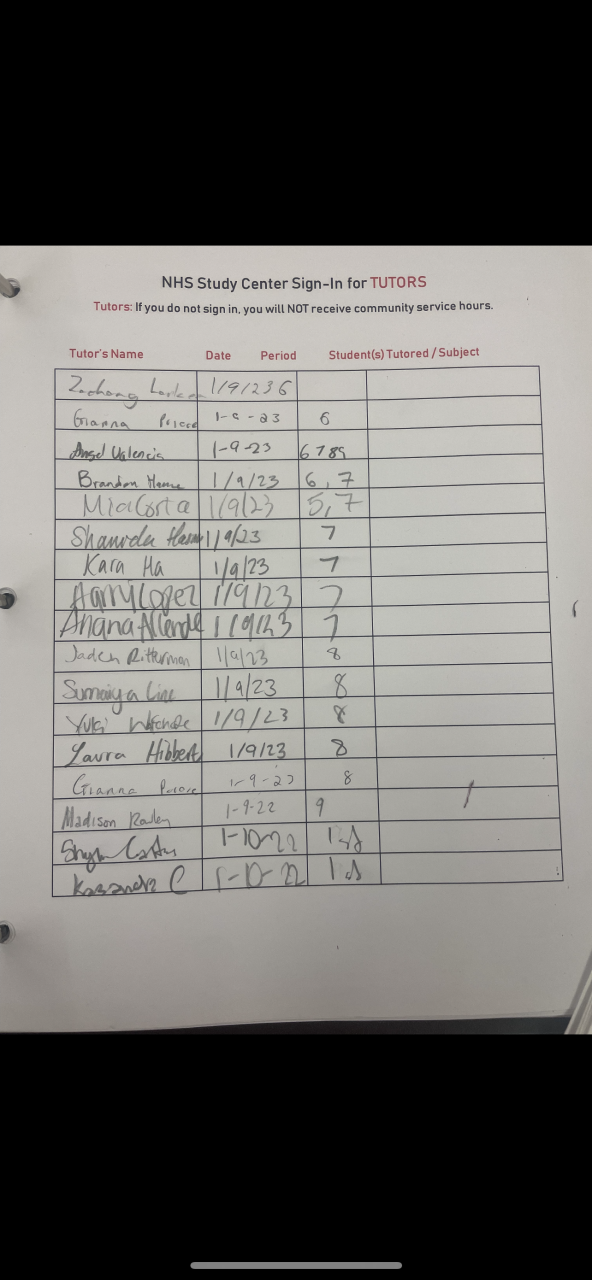 NHS Study Center Sign-In for TUTORS
Tutors: If you do not sign in, you will NOT receive community service hours.
Tutor's Name Date Period Student(s) Tutored / Subject
1/9/23 6
Gianna 1-9-23 6
Angel Valencia 1-9-23 6789
Brandon 1/9/23 6, 7
Mia Costa 1/9/23 5, 7
1/9/23 7
Kara Ha 1/9/23 7
Harry Lopez 1/9/23 7
Ahana Allende 1/9/23 7
Jaden Ritterman 1/9/23 8
Sumaiya 1/9/23 8
Yuki 1/9/23 8
Laura Hibbert 1/9/23 8
Gianna 1-9-23 8
Madison 1-9-22 9
1-10-22 1st
C 1-10-22 1st